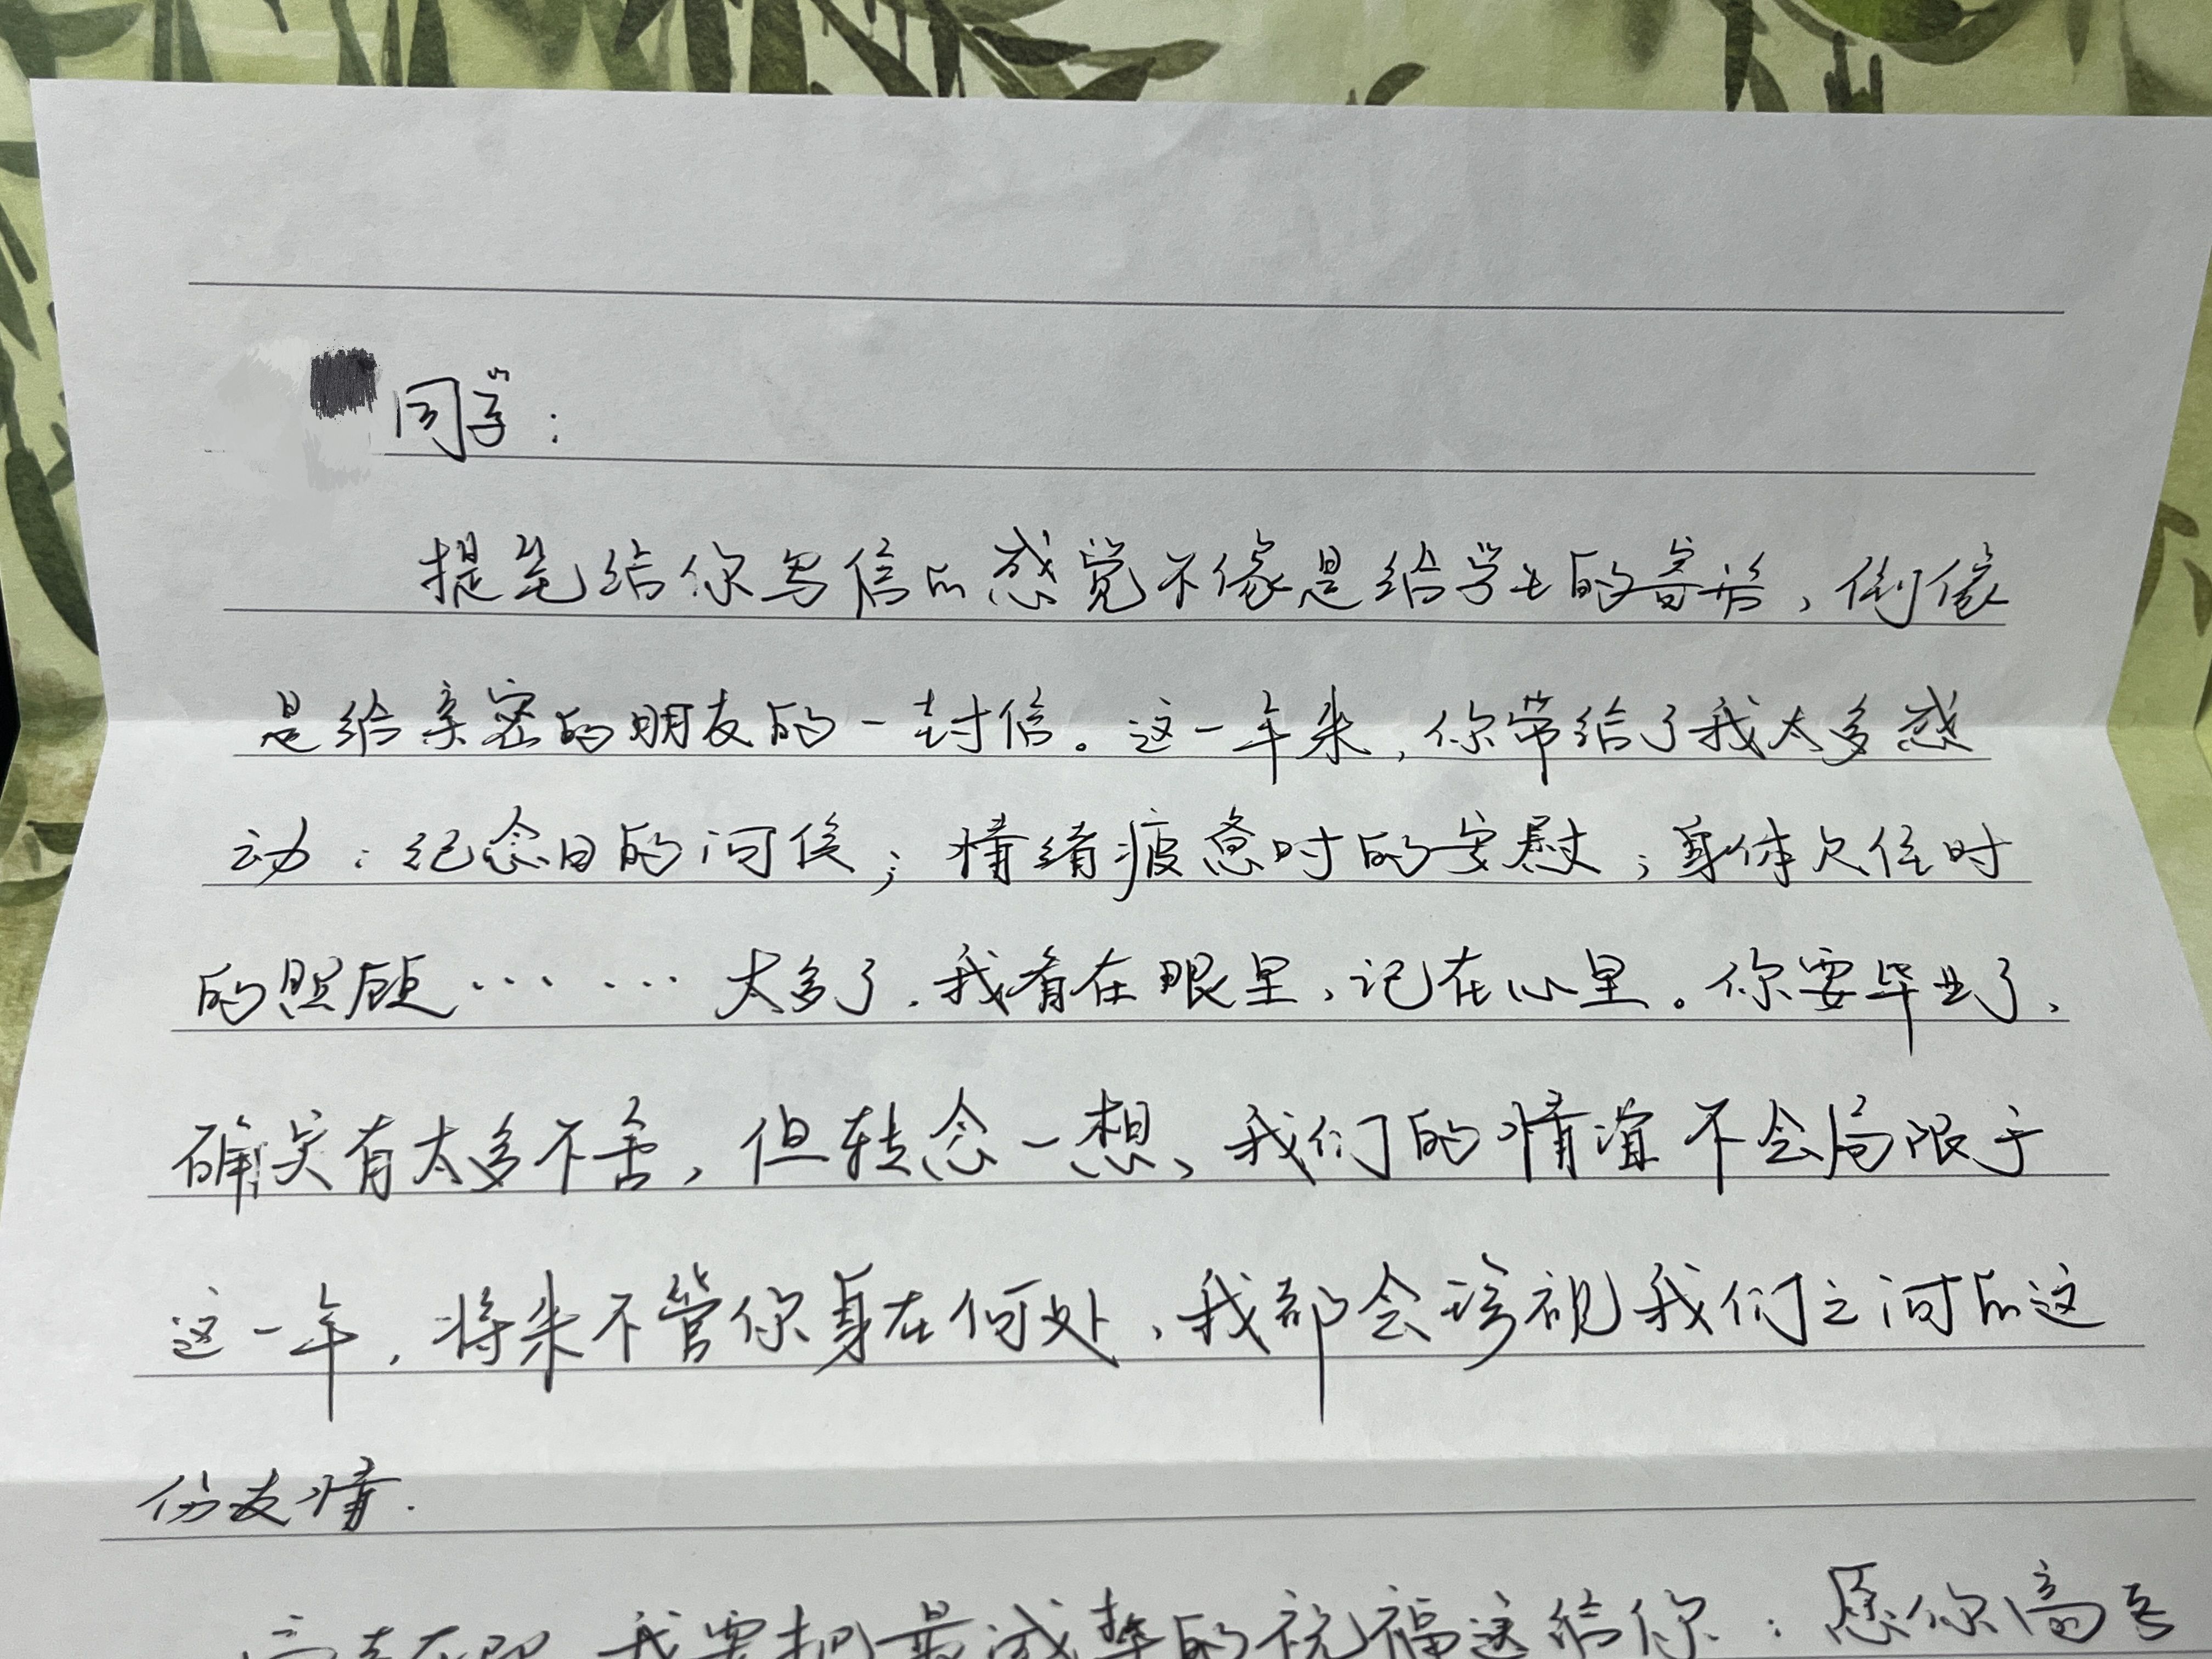 同学：
提笔给你写信的感觉不像是给学生的寄语，倒像
是给亲密的朋友的一封信。这一年来，你带给了我太多感
动：纪念日的问候；情绪疲惫时的安慰；身体欠佳时
的照顾…… 太多了，我看在眼里，记在心里。你要毕业了，
确实有太多不舍，但转念一想，我们的情谊不会局限于
这一年，将来不管你身在何处，我都会珍视我们之间的这
份友情.
高考在即，我要把最诚挚的祝福送给你：愿你高考